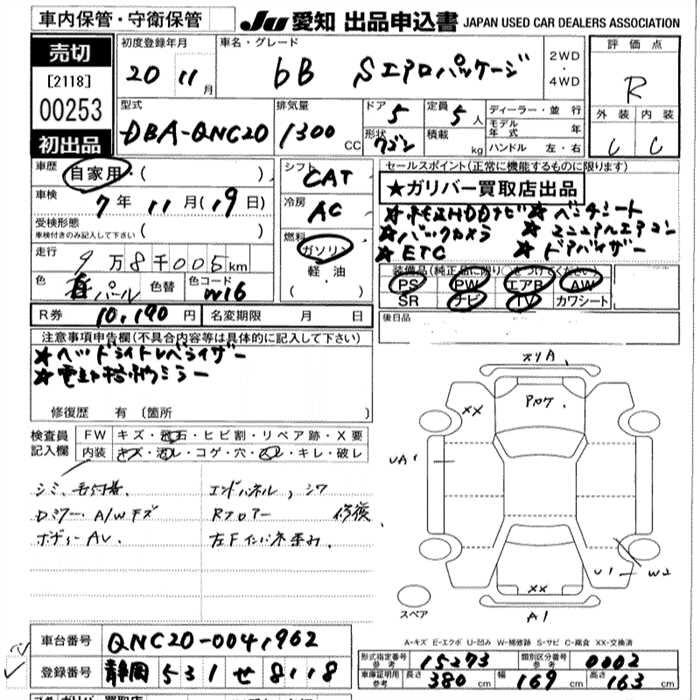 車内保管・守衛保管
JU 愛知 出品申込書 JAPAN USED CAR DEALERS ASSOCIATION
売切
[2118]
00253
初出品
初度登録年月
20 11月
車名・グレード
bB Sエアロパッケージ
2WD
・
4WD
評価点
R
外装 内装
C C
型式
DBA-QNC20
排気量
1300 CC
ドア
5
形状
ワゴン
定員
5人
積載
kg
ディーラー・並行
モデル年式 年
ハンドル 左・右
車歴
自家用・( )
車検
7年11月(19日)
受検形態
車検付きのみ記入して下さい
( )
走行
9万8千005km
色
パール
色替
色コード
W16
シフト
CAT
冷房
AC
燃料
ガソリン
・
軽油
( ・ )
セールスポイント(正常に機能するものに限ります)
★ガリバー買取店出品
★純正HDDナビ ★ベンチシート
★バックカメラ ★マニュアルエアコン
★ETC ★ドアバイザー
装備品(純正品に限り○をつけてください)
PS PW エアB AW
SR ナビ TV カワシート
R券 10,190円 名変期限 月 日
後日品
注意事項申告欄(不具合内容等は具体的に記入して下さい)
★ヘッドライトレベライザー
★電動格納ミラー
修復歴 有 (箇所 )
検査員記入欄
FW キズ・飛石・ヒビ割・リペア跡・X要
内装 キズ・汚レ・コゲ・穴・スレ・キレ・破レ
シミ、毛付着 エンドパネル、シワ
Dミラー、A/Wキズ Rフロアー 修復
ボディーAU. 左Fインパネ歪み
XXA
XX
Pカケ.
UA1
U1 W2
XX
A1
スペア
A-キズ E-エクボ U-凹み W-補修跡 S-サビ C-腐食 XX-交換済
車台番号 QNC20-0041962
登録番号 静岡 531 せ 8118
型式指定番号 参考 15273
類別区分番号 参考 0002
車庫証明用 参考 長さ 380 cm 幅 169 cm 高さ 163 cm
ガリバー買取店